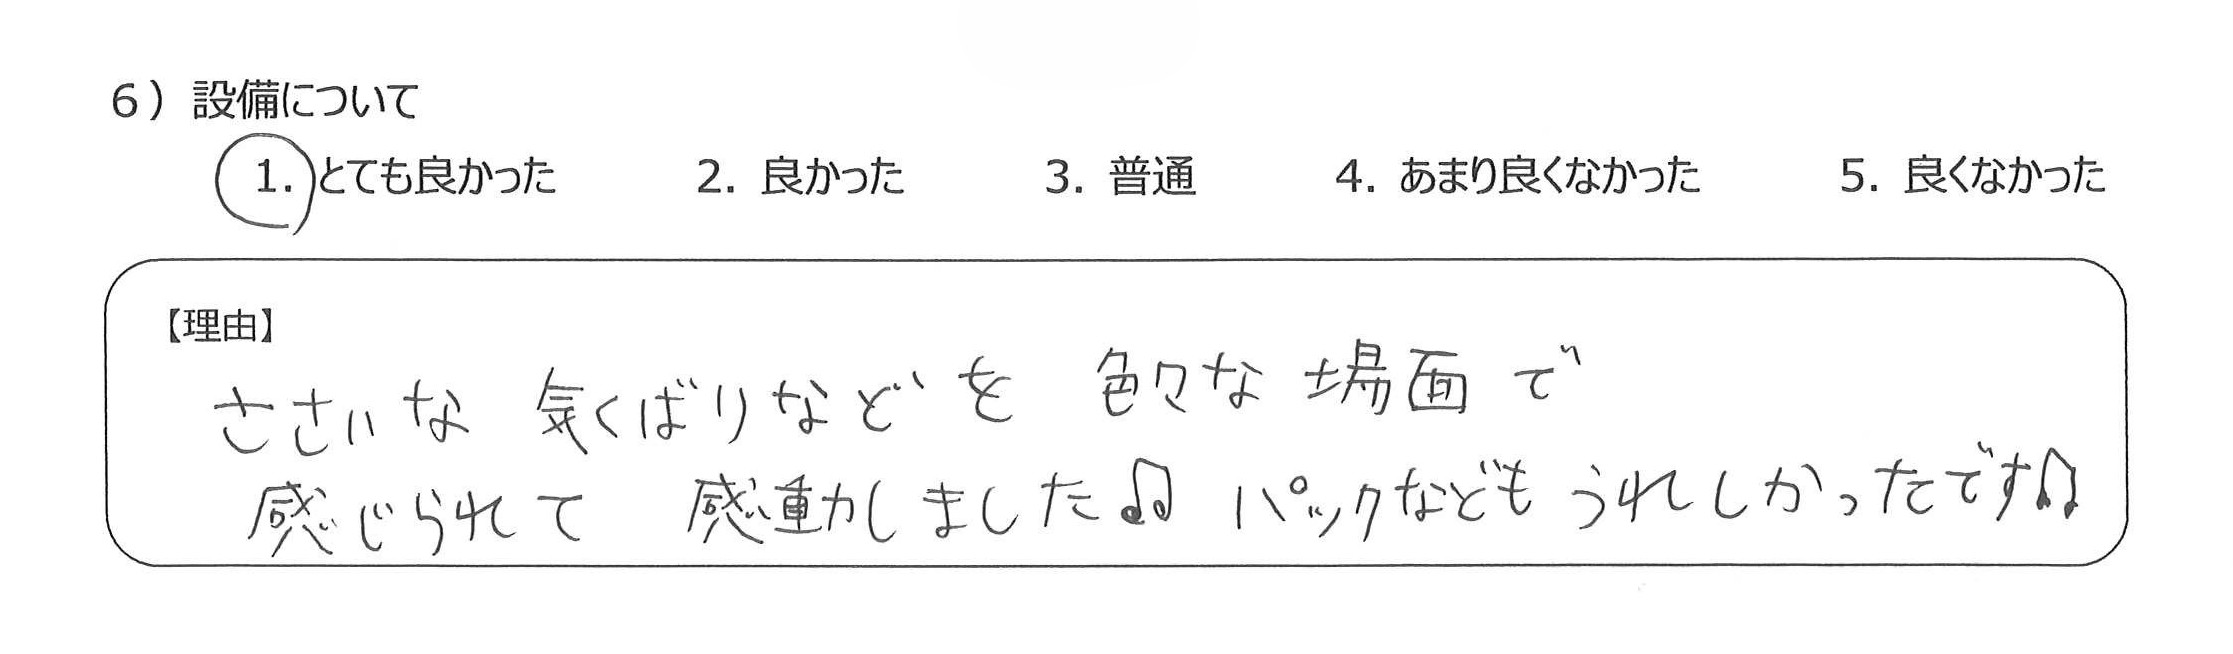 6）設備について
1. とても良かった 2. 良かった 3. 普通 4. あまり良くなかった 5. 良くなかった
【理由】
ささいな 気くばりなどを 色々な場面で
感じられて 感動しました♫ パックなどもうれしかったです♫